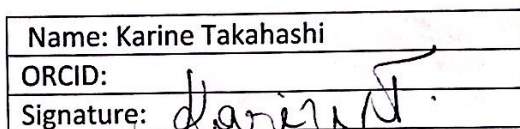 Name: Karine Takahashi
ORCID:
Signature: Karine T.